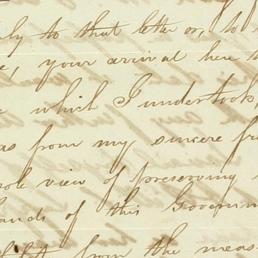 ly to that letter or, to
, your arrival here
which I undertook,
as from my sincere fr
ole view of preserving
ands of this Governm
from the meas